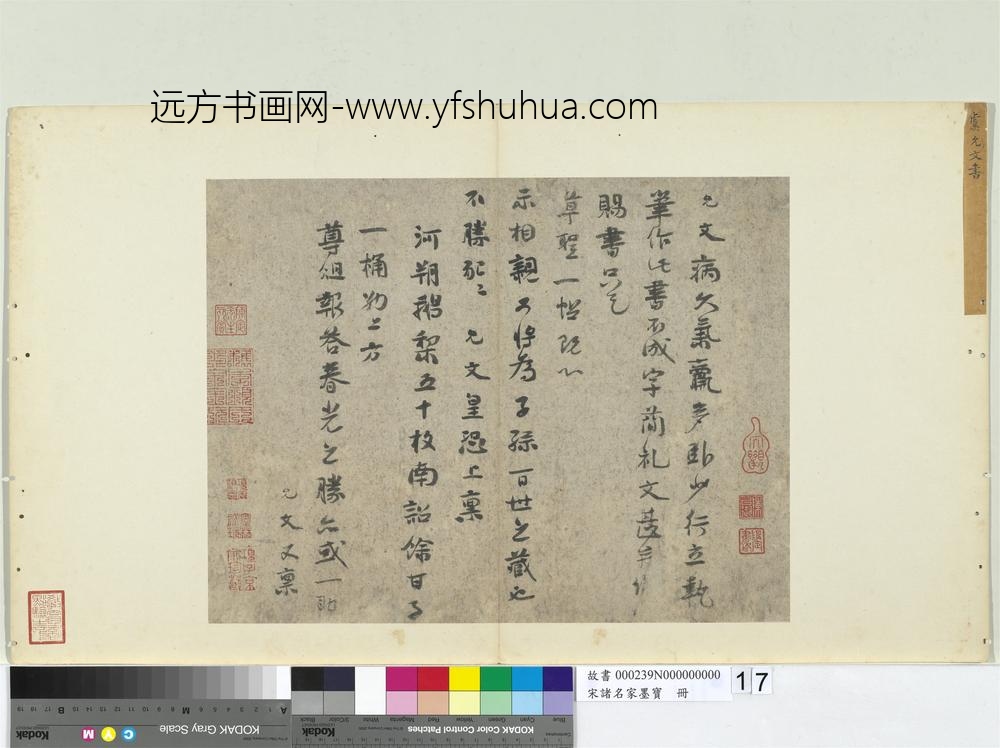 远方书画网-www.yfshuhua.com
虞允文書
允文病久氣羸多卧少行立執
筆作此書不成字簡礼文甚
賜書
草聖一帖
示相親可傳為子孫百世之藏也
不勝 允文皇恐上稟
河朔鵝梨五十枚南詔馀甘子
一桶勒上方
尊俎報答春光之勝亦或一助
允文又稟
故書 000239N000000000
宋諸名家墨寶 冊
17
KODAK Gray Scale
KODAK Color Control Patches
Kodak
Kodak
C Y M
Blue Cyan Green Yellow Red Magenta White 3/Color Black
A 1 2 3 4 5 6 M 8 9 10 11 12 13 14 15 B 17 18 19